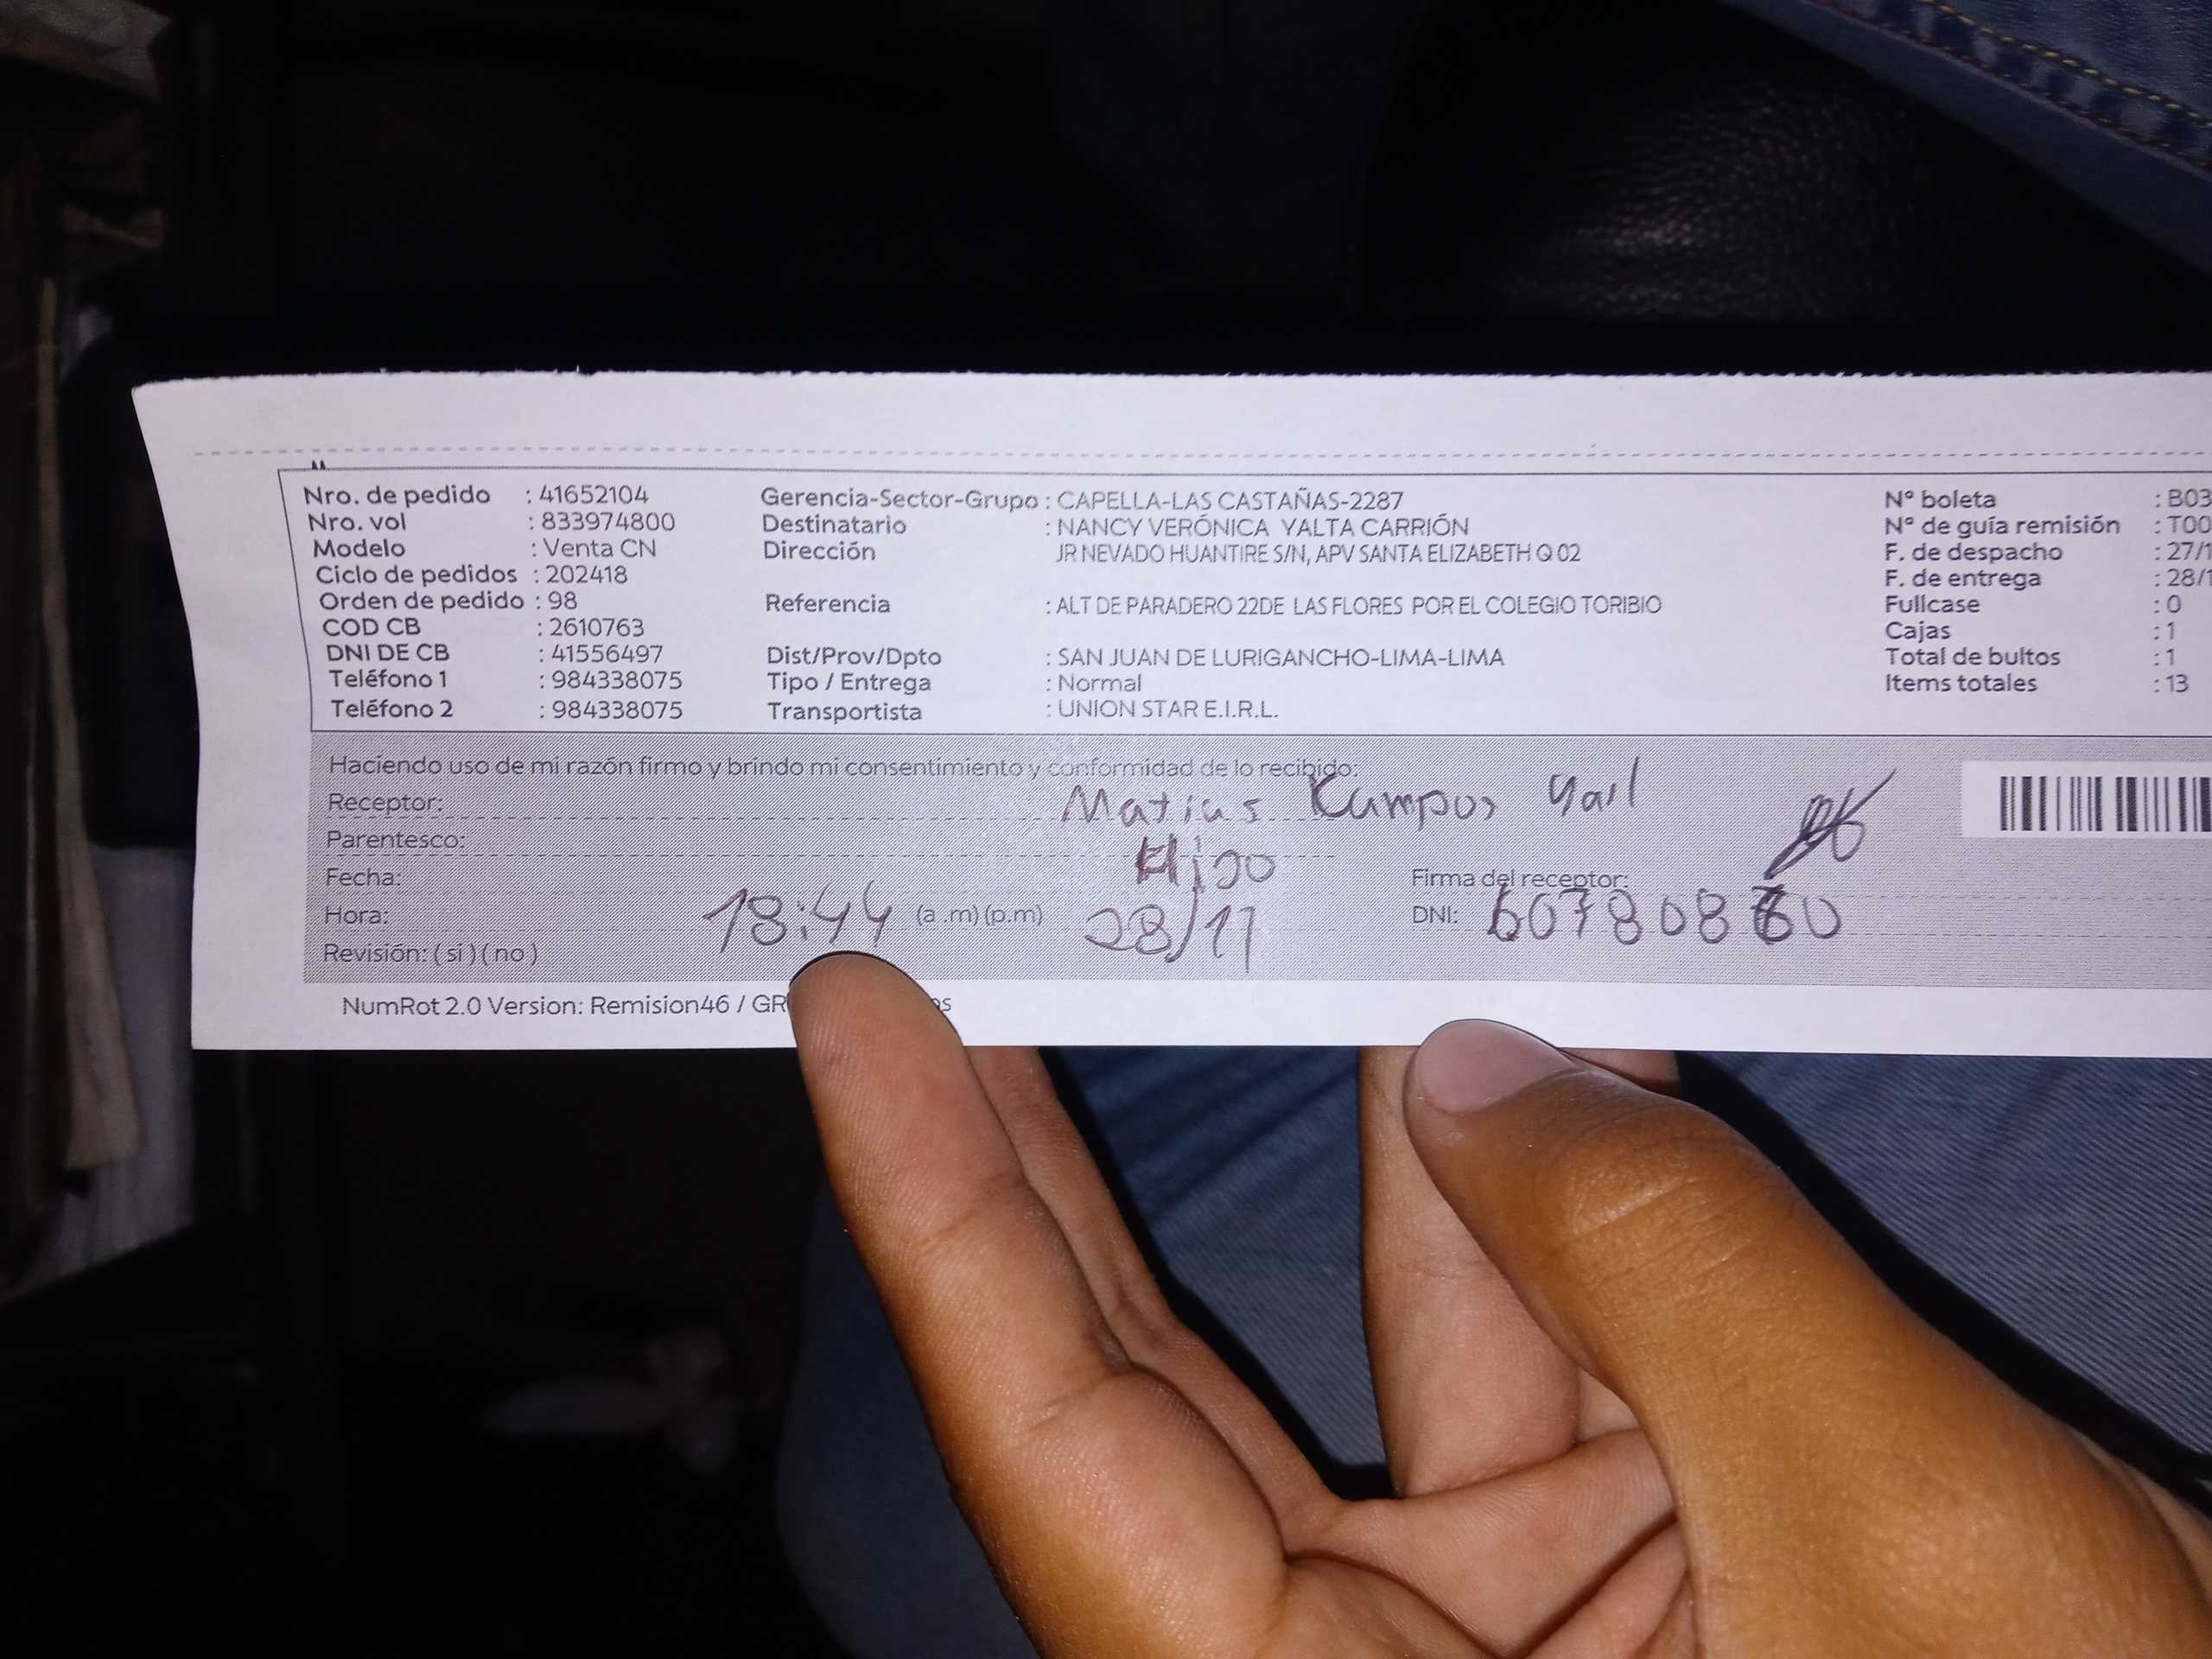 Nro. de pedido : 41652104
Nro. vol : 833974800
Modelo : Venta CN
Ciclo de pedidos : 202418
Orden de pedido : 98
COD CB : 2610763
DNI DE CB : 41556497
Teléfono 1 : 984338075
Teléfono 2 : 984338075
Gerencia-Sector-Grupo : CAPELLA-LAS CASTAÑAS-2287
Destinatario : NANCY VERÓNICA YALTA CARRIÓN
Dirección JR NEVADO HUANTIRE S/N, APV SANTA ELIZABETH Q 02
Referencia : ALT DE PARADERO 22DE LAS FLORES POR EL COLEGIO TORIBIO
Dist/Prov/Dpto : SAN JUAN DE LURIGANCHO-LIMA-LIMA
Tipo / Entrega : Normal
Transportista : UNION STAR E.I.R.L.
N° boleta : B03
N° de guía remisión : T00
F. de despacho : 27/1
F. de entrega : 28/1
Fullcase : 0
Cajas : 1
Total de bultos : 1
Items totales : 13
Haciendo uso de mi razón firmo y brindo mi consentimiento y conformidad de lo recibido:
Receptor: Matias Kampos
Parentesco: Hijo
Fecha:
Firma del receptor:
Hora: 18:44 (a .m) (p.m) 28/11
DNI:
Revisión: ( si ) ( no )
NumRot 2.0 Version: Remision46 / GR